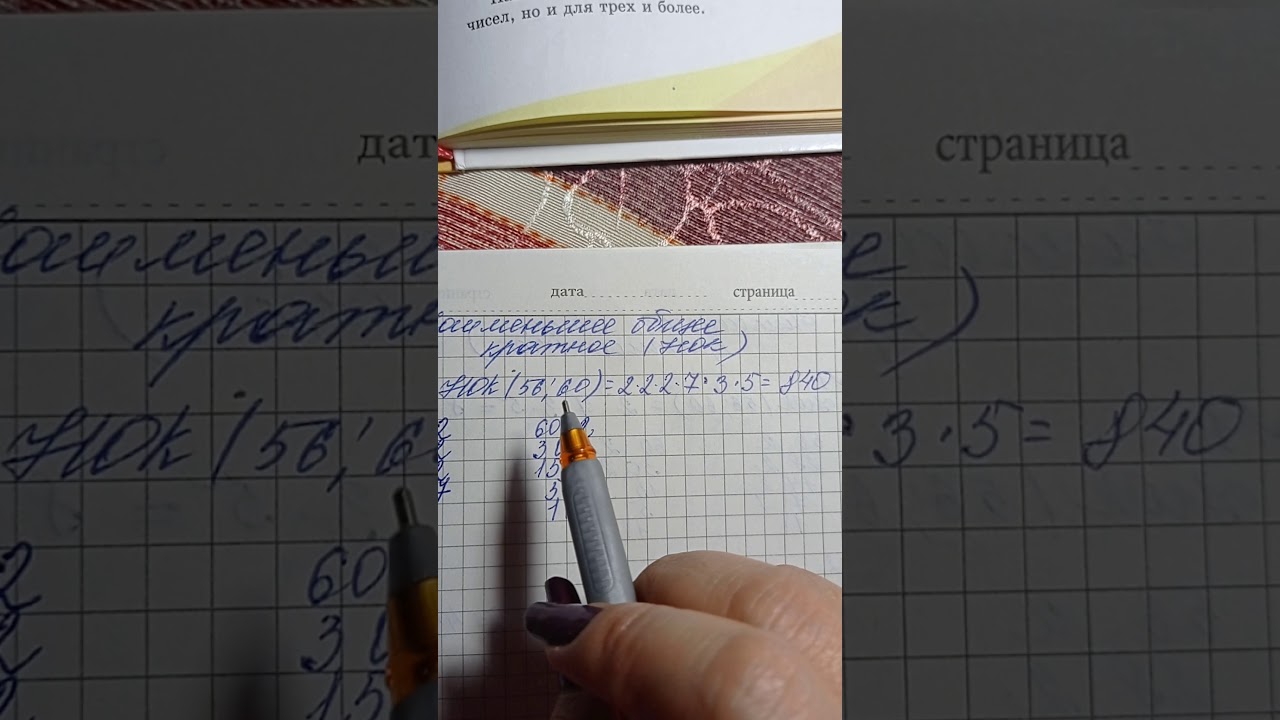 чисел, но и для трех и более.
дата страница
Наименьшее общее
кратное (НОК)
НОК (56; 60) = 2·2·2·7·3·5 = 840
2 60 2
2 30
2 15
7 3
1